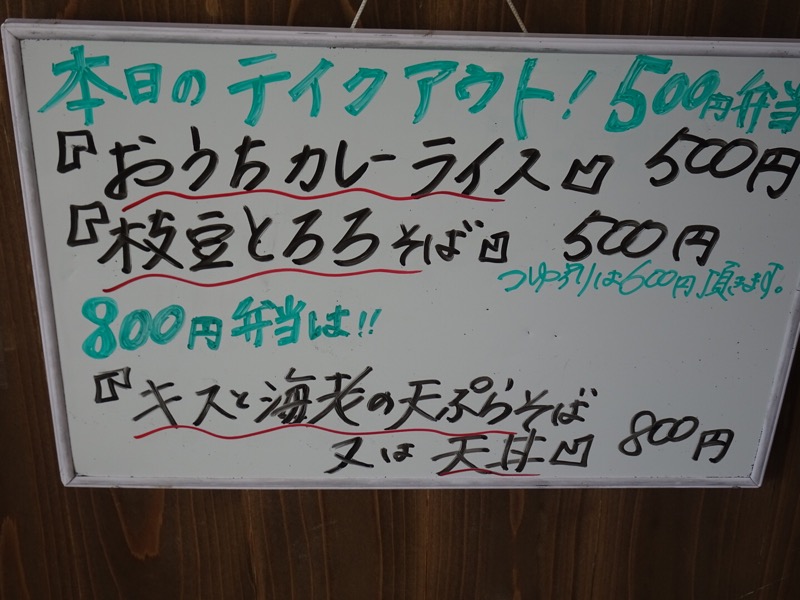 本日のテイクアウト!500円弁当
『おうちカレーライス』 500円
『枝豆とろろそば』 500円
つゆ有りは600円頂きます。
800円弁当は!!
『キスと海老の天ぷらそば
又は天丼』 800円